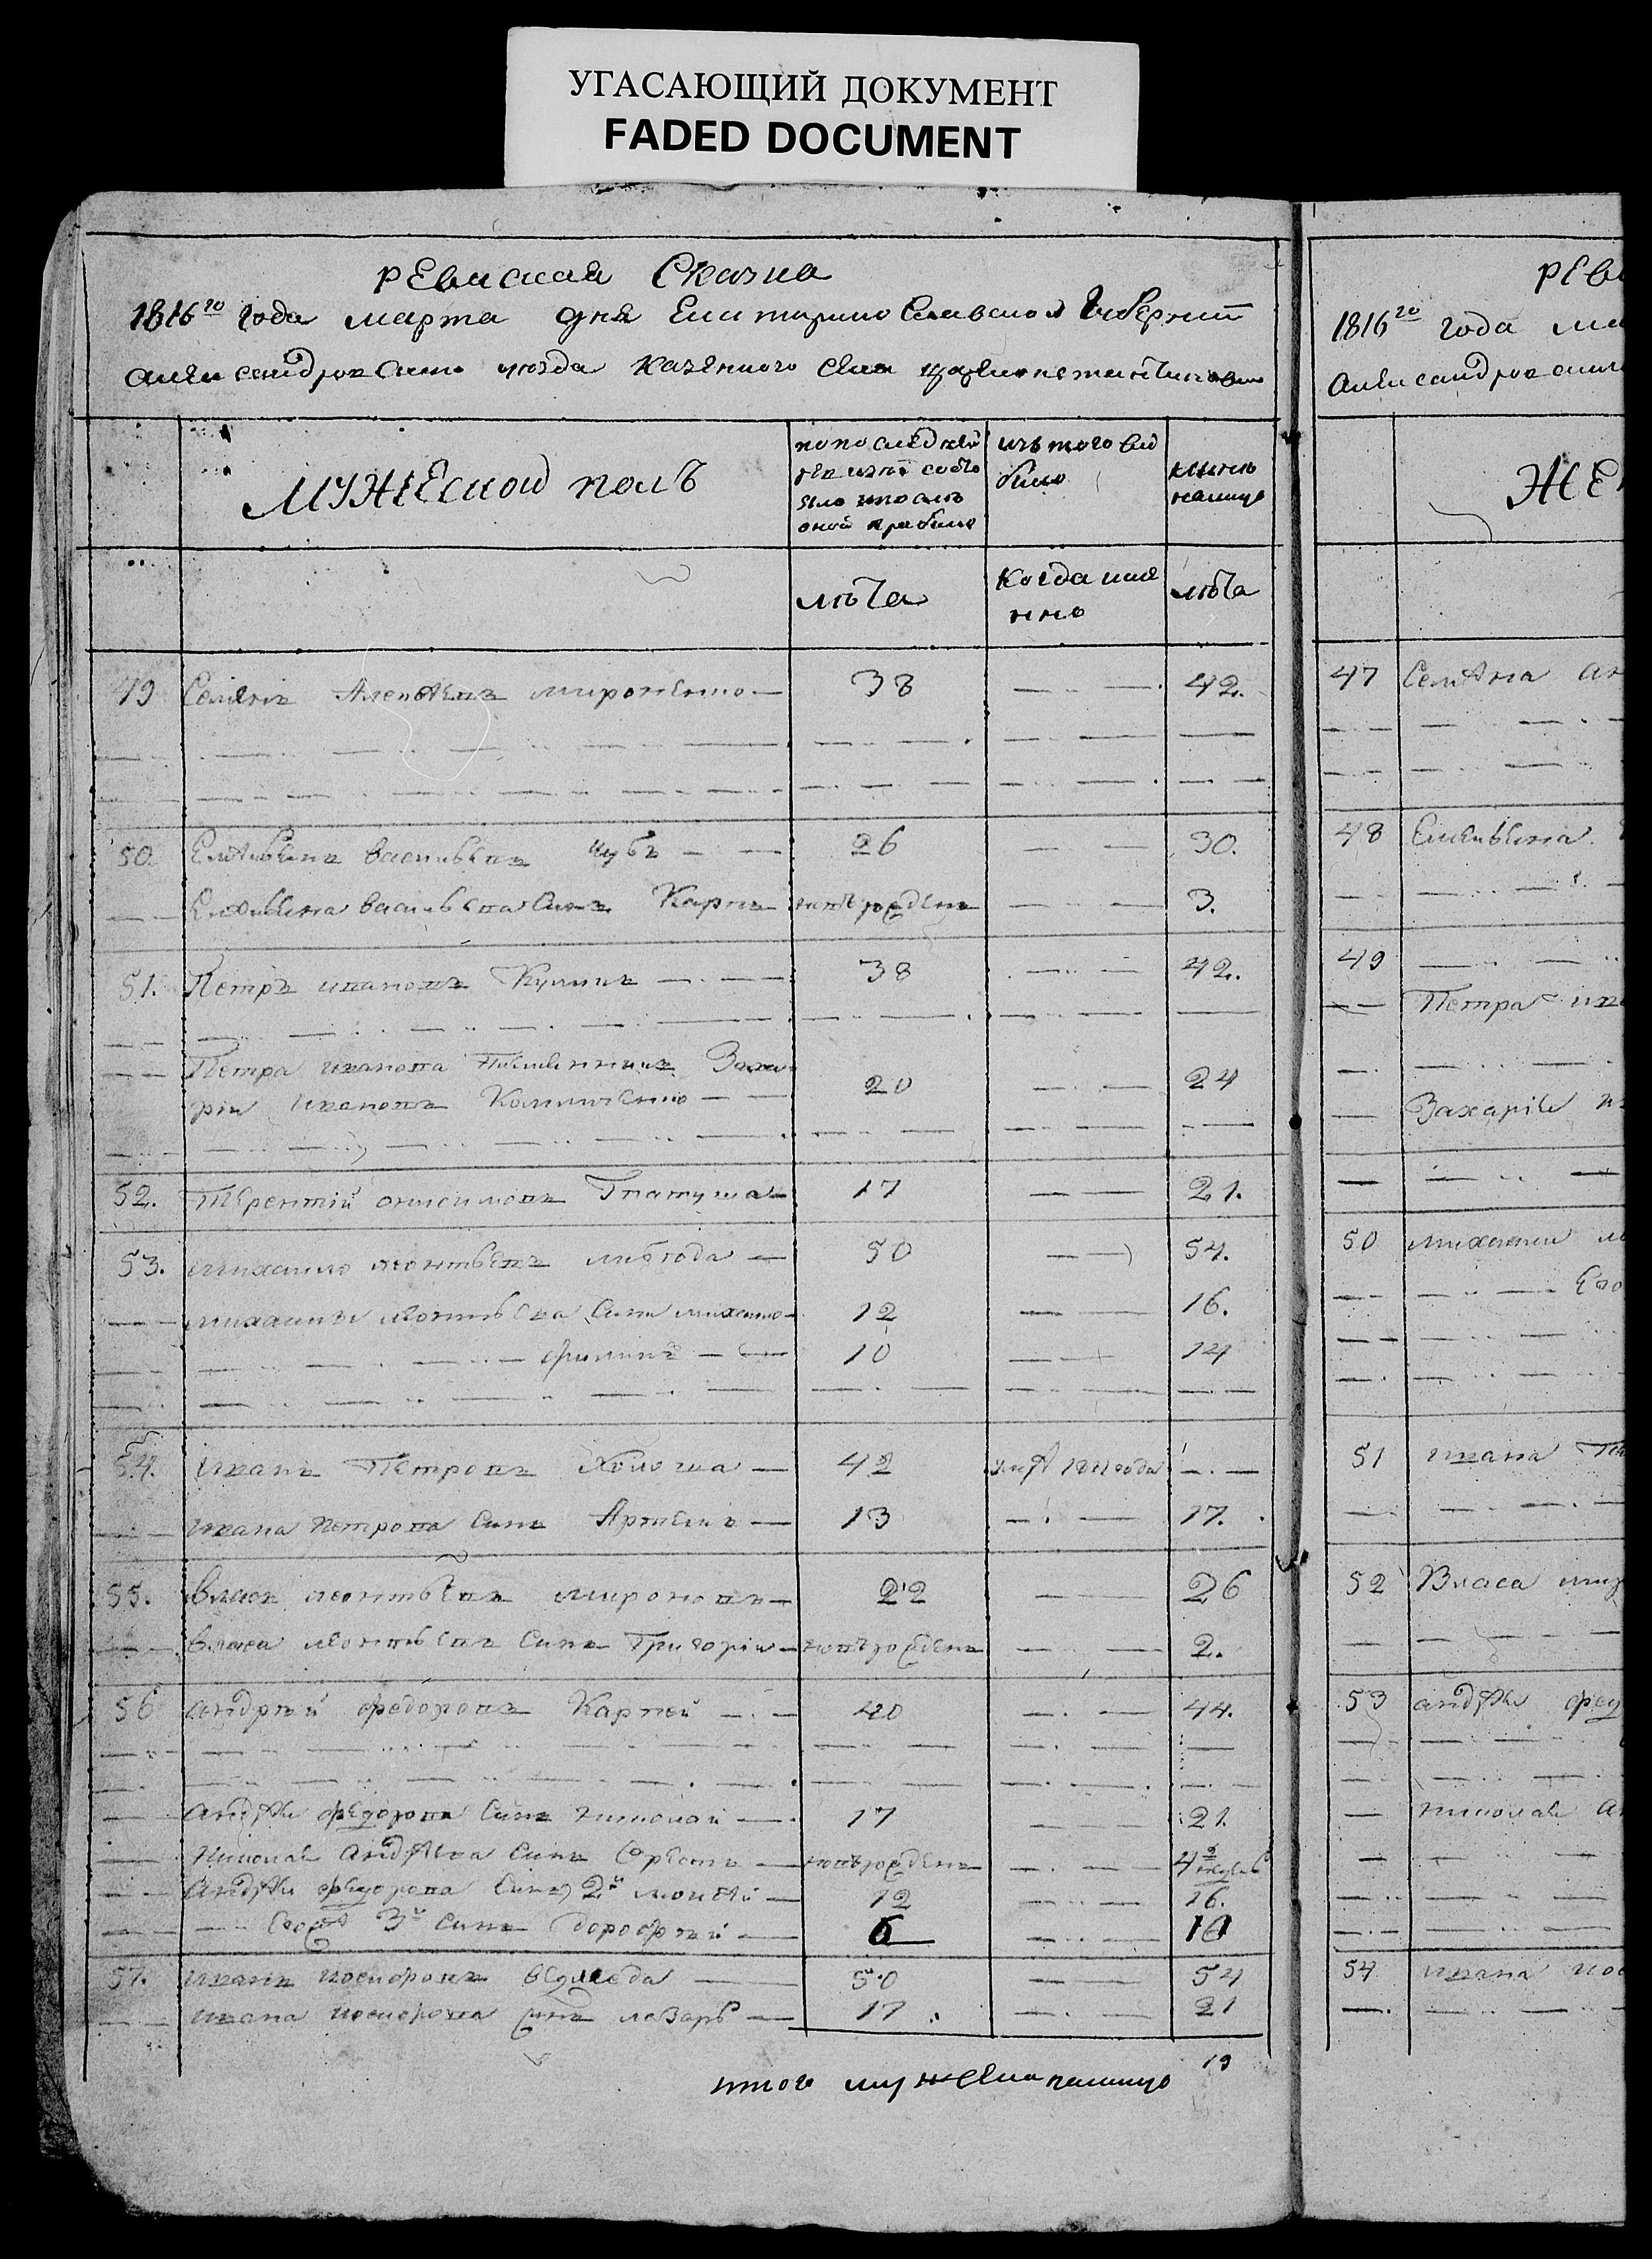 УГАСАЮЩИЙ ДОКУМЕНТ
FADED DOCUMENT
ревиская Сказка
1816го года марта дня Екатеринославской Губернии
александровского уезда казенного села
мужеской полъ
по последней
ревизіи состо
яло и после
оной прибыло
изъ того вы
было
ныне
налицо
лѣта
когда име
нно
лѣта
49 Семенъ Алексѣевъ мироненко 38 42.
50. Емельянъ васильевъ чубъ 26 30.
Емельяна васильева Синъ Карпъ новорожденъ 3.
51. Петръ ивановъ Кулишъ 38 42.
Петра иванова племянникъ Заха
рій ивановъ 20 24
52. Терентій онисимовъ Гнатуша 17 21.
53. михаило леонтьевъ лебода 50 54.
михаила леонтьева Сини михаило 12 16.
филипъ 10 14
54. иванъ Петровъ Холоша 42 умре 1811 года
ивана петрова Синъ Артемъ 13 17.
55. власъ леонтьевъ мироновъ 22 26
власа леонтьева Синъ Григорій новорожденъ 2.
56 андрей федоровъ Карпей 40 44.
андрея федорова Синъ николай 17 21.
николая андреева Синъ Орестъ новорожденъ
андрея федорова Синъ 2й мойсѣй 12 16.
Его 3й Синъ дорофѣй 6 10
57. иванъ никифоровъ ведмеда 50 54
ивана никифорова Синъ лазарь 17 21
итого мужеска налицо 19
реви
1816го года ма
александровского
ЖЕН
47 Семена ал
48 Емельяна
49
Петра ива
Захарія ив
50 михаила ле
Его
51 ивана пе
52 Власа мир
53 андрея фед
николая ан
54 ивана